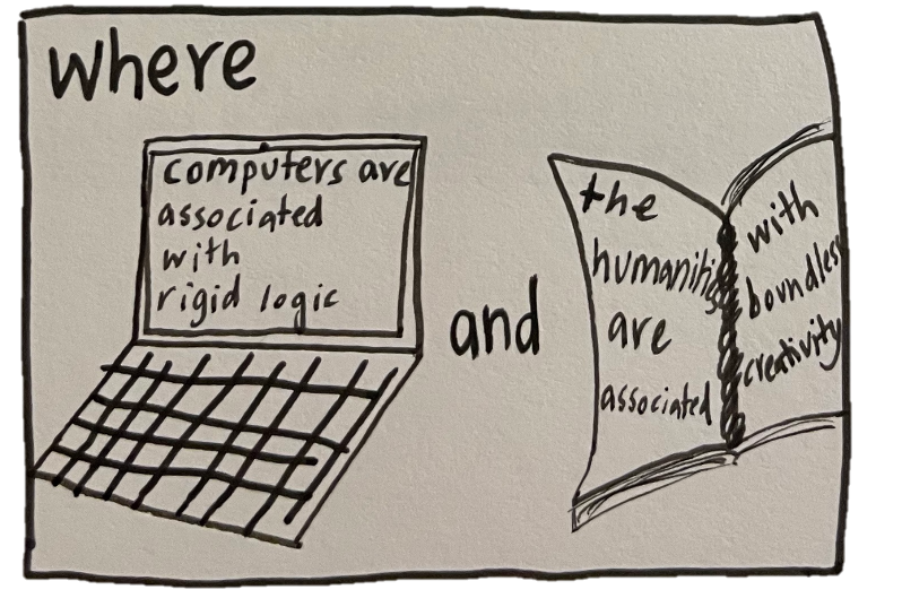 Where
computers are
associated
with
rigid logic
and
the
humanities
are
associated
with
boundless
creativity